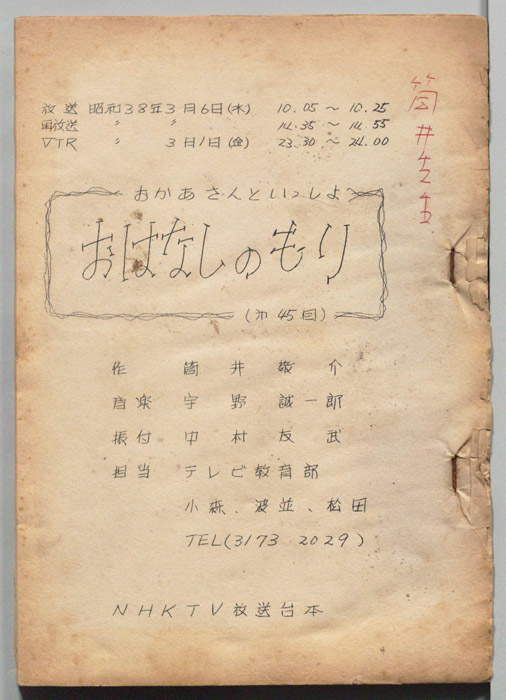 放送 昭和38年3月6日(木) 10.05～10.25
再放送 〃 〃 14.35～14.55
VTR 〃 3月1日(金) 23.30～24.00
筒井先生
おかあさんといっしょ
おはなしのもり
(第45回)
作 筒井敬介
音楽 宇野誠一郎
振付 中村友武
担当 テレビ教育部
小森、波並、松田
TEL(3173 2029)
NHKTV放送台本